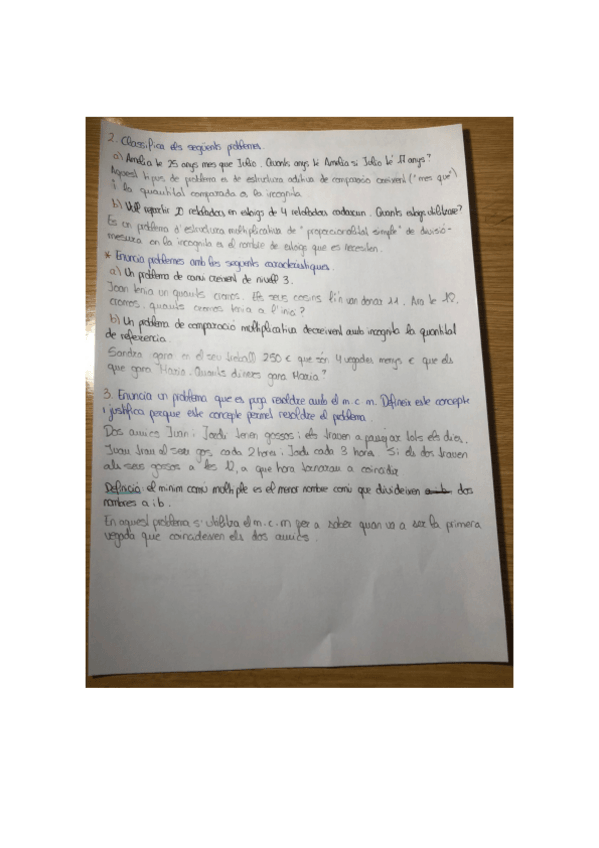 2. Classifica els següents problemes.
a) Amelia te 25 anys mes que Julio. Quants anys té Amelia si Julio té 17 anys?
Aquest tipus de problema es de estructura aditiva de comparació creixent ("mes que")
i la quantitat comparada es la incognita.
b) Vull repartir 20 retoladors en estoigs de 4 retoladors cadascun. Quants estoigs utilitzare?
Es un problema d'estructura multiplicativa de "proporcionalitat simple" de divisió-
mesura on la incognita es el nombre de estoigs que es necesiten.
* Enuncia problemes amb les seguents caracteristiques.
a) Un problema de canvi creixent de nivell 3.
Joan tenia un quants cromos. Els seus cosins li'n van donar 22. Ara te
cromos, quants cromos tenia a l'inici?
b) Un problema de comparació multiplicativa decreixent amb incognita la quantitat
de referencia.
Sandra gana en el seu treball 250 € que són 4 vegades menys € que els
que gana Maria. Quants diners gana Maria?
3. Enuncia un problema que es puga resoldre amb el m.c.m. Defineix este concepte
i justifica perque este concepte permet resoldre el problema.
Dos amics Juan i Jade tenen gossos i els trauen a passejar tots els dies.
Juan trau al seus gos cada 2 hores i Jade cada 3 hores. Si els dos trauen
als seus gossos a les 12, a que hora tornaran a coincidir
Definició: el minim comú multiple es el menor nombre comú que divideixen dos
nombres a i b.
En aquest problema s'utilitza el m.c.m per a saber quan va a ser la primera
vegada que coincideixen els dos amics.